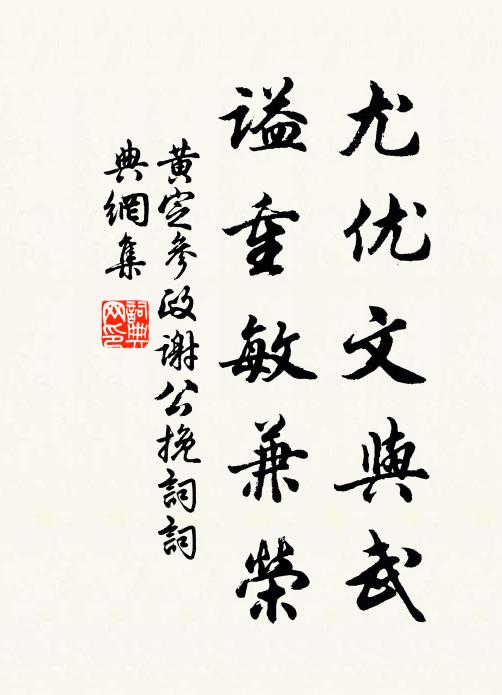 尤优文與武
谥重敏兼榮
黄定參政謝公挽詞詞
典網集
詞典
网印